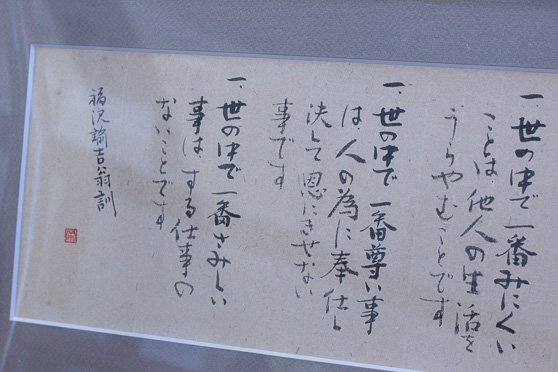 一、世の中で一番みにくい
ことは他人の生活を
うらやむことです
一、世の中で一番尊い事
は、人の為に奉仕し
決して恩にきせない
事です
一、世の中で一番さみしい
事は、する仕事の
ないことです
福沢諭吉翁訓